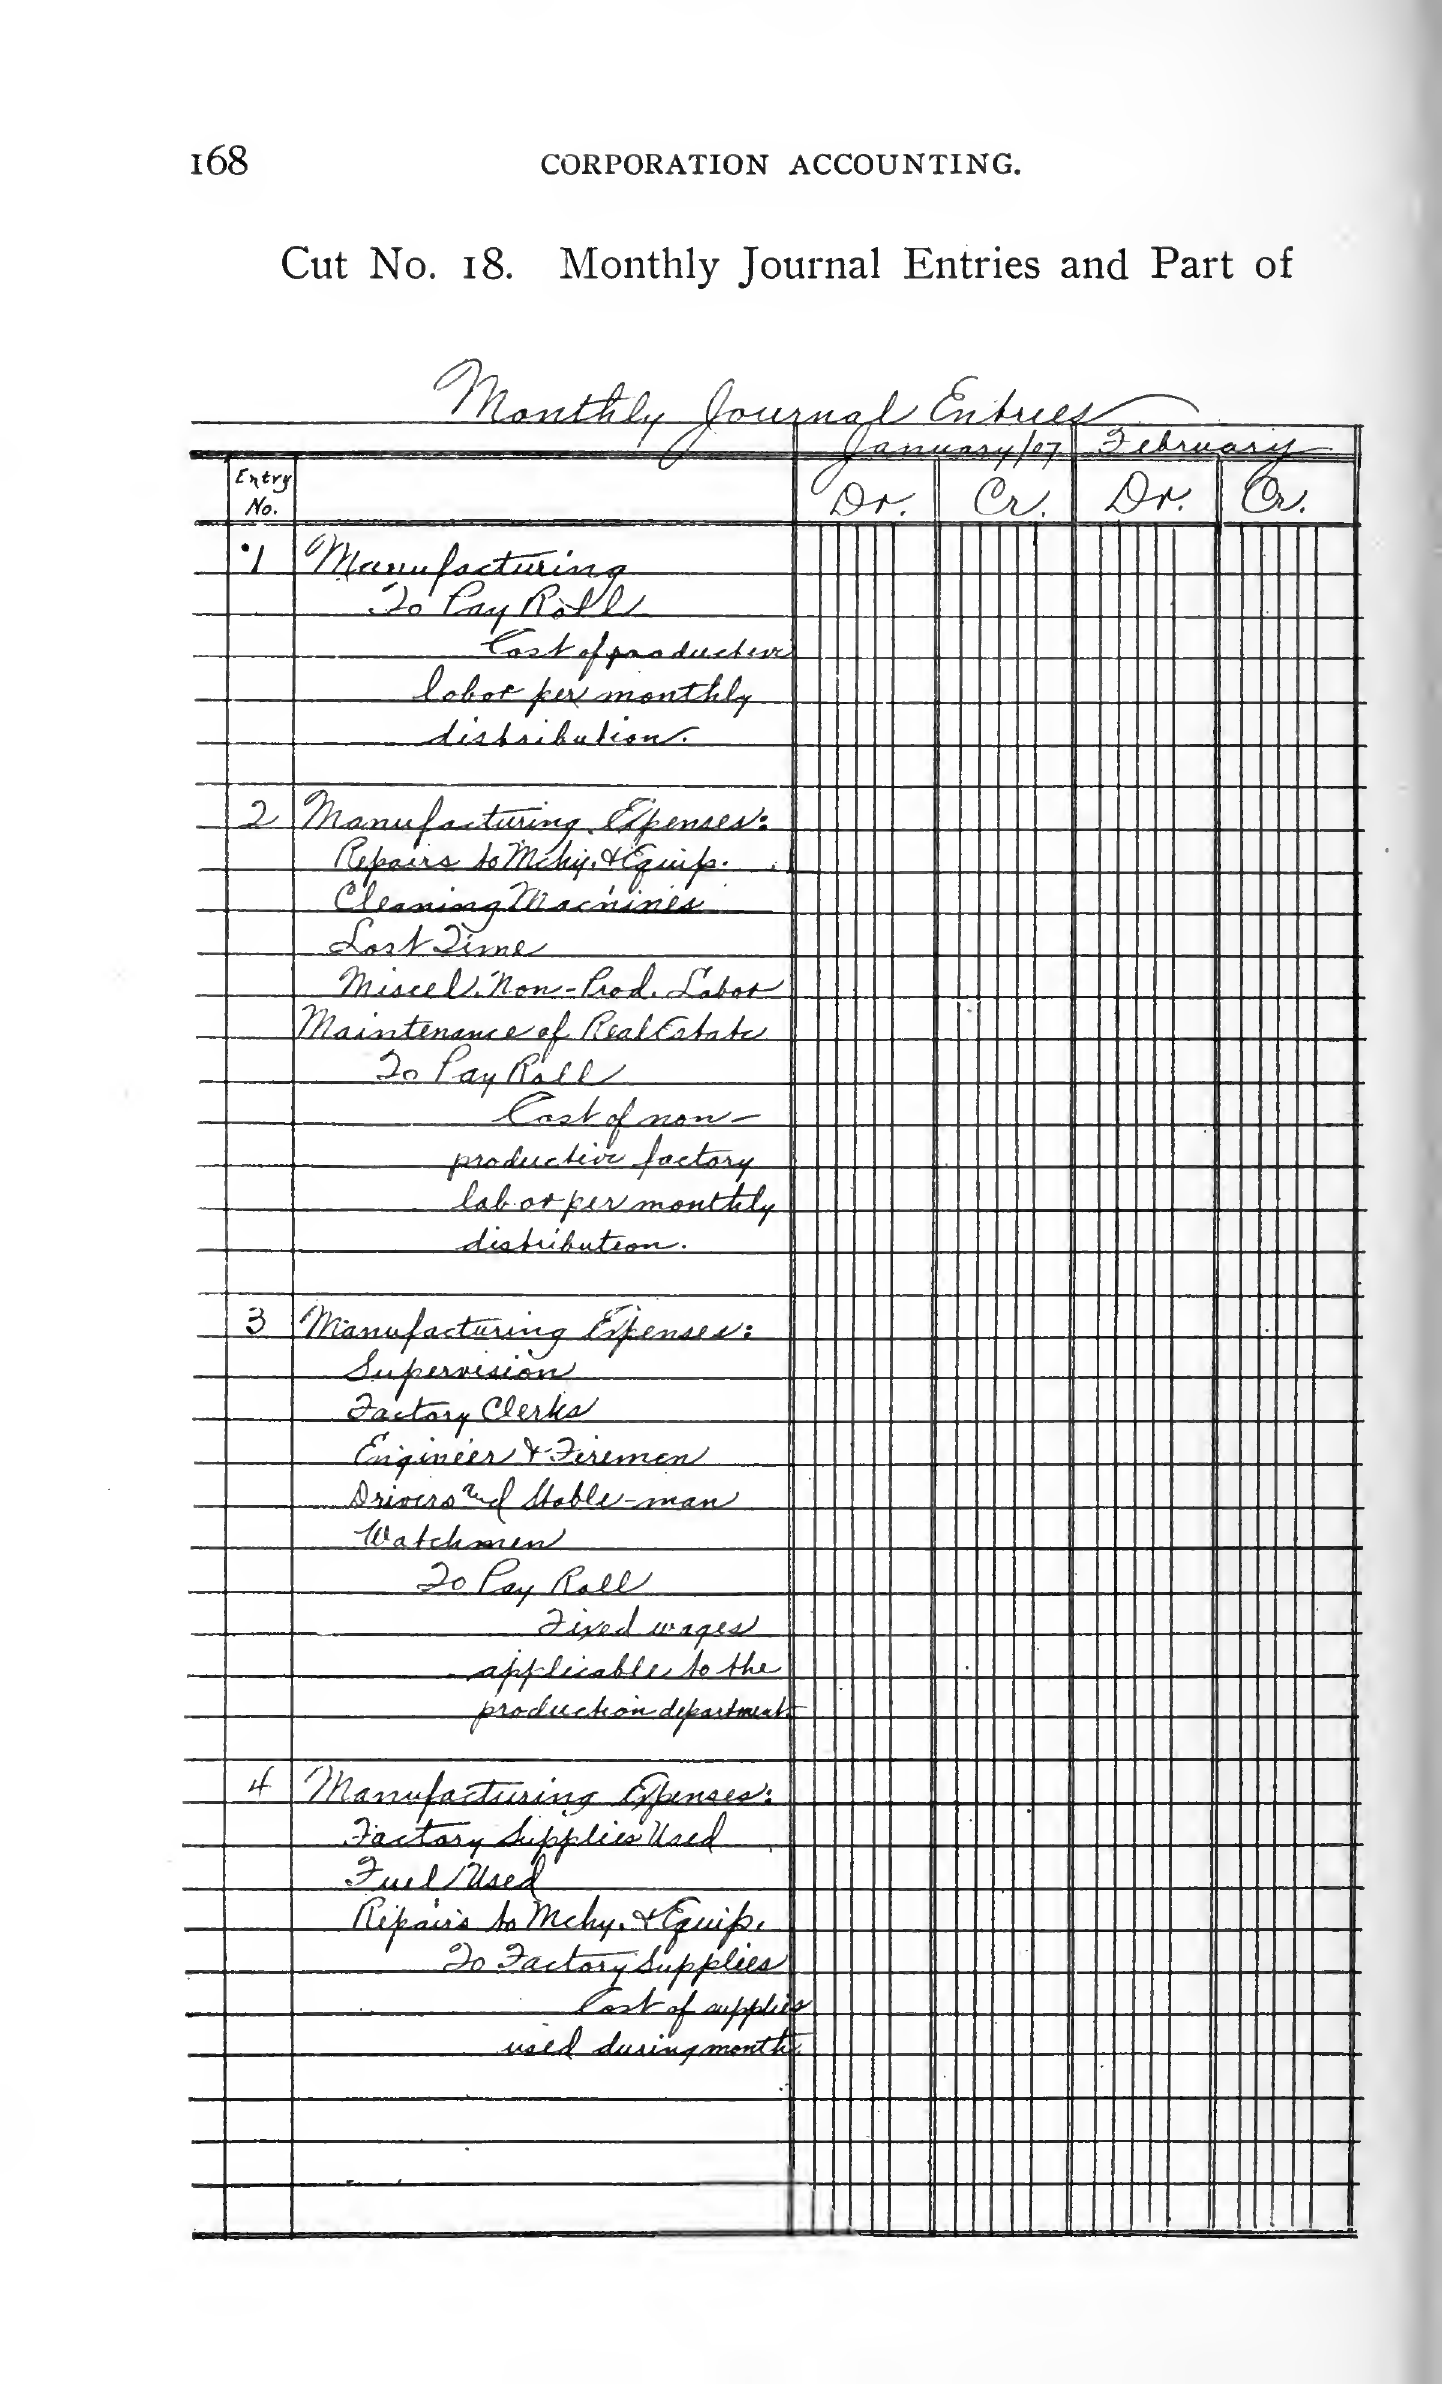 168 CORPORATION ACCOUNTING.
Cut No. 18. Monthly Journal Entries and Part of
Monthly Journal Entries
January/07 February
Entry No. Dr. Cr. Dr. Cr.
1 Manufacturing
To Pay Roll
Cost of productive
labor per monthly
distribution.
2 Manufacturing Expenses:
Repairs to Mchy. & Equip.
Cleaning Machines
Lost Time
Miscel. Non-Prod. Labor
Maintenance of Real Estate
To Pay Roll
Cost of non-
productive factory
labor per monthly
distribution.
3 Manufacturing Expenses:
Supervision
Factory Clerks
Engineer & Firemen
Drivers and Stable-man
Watchmen
To Pay Roll
Fixed wages
applicable to the
production department.
4 Manufacturing Expenses:
Factory Supplies Used
Fuel Used
Repairs to Mchy. & Equip.
To Factory Supplies
Cost of supplies
used during month.